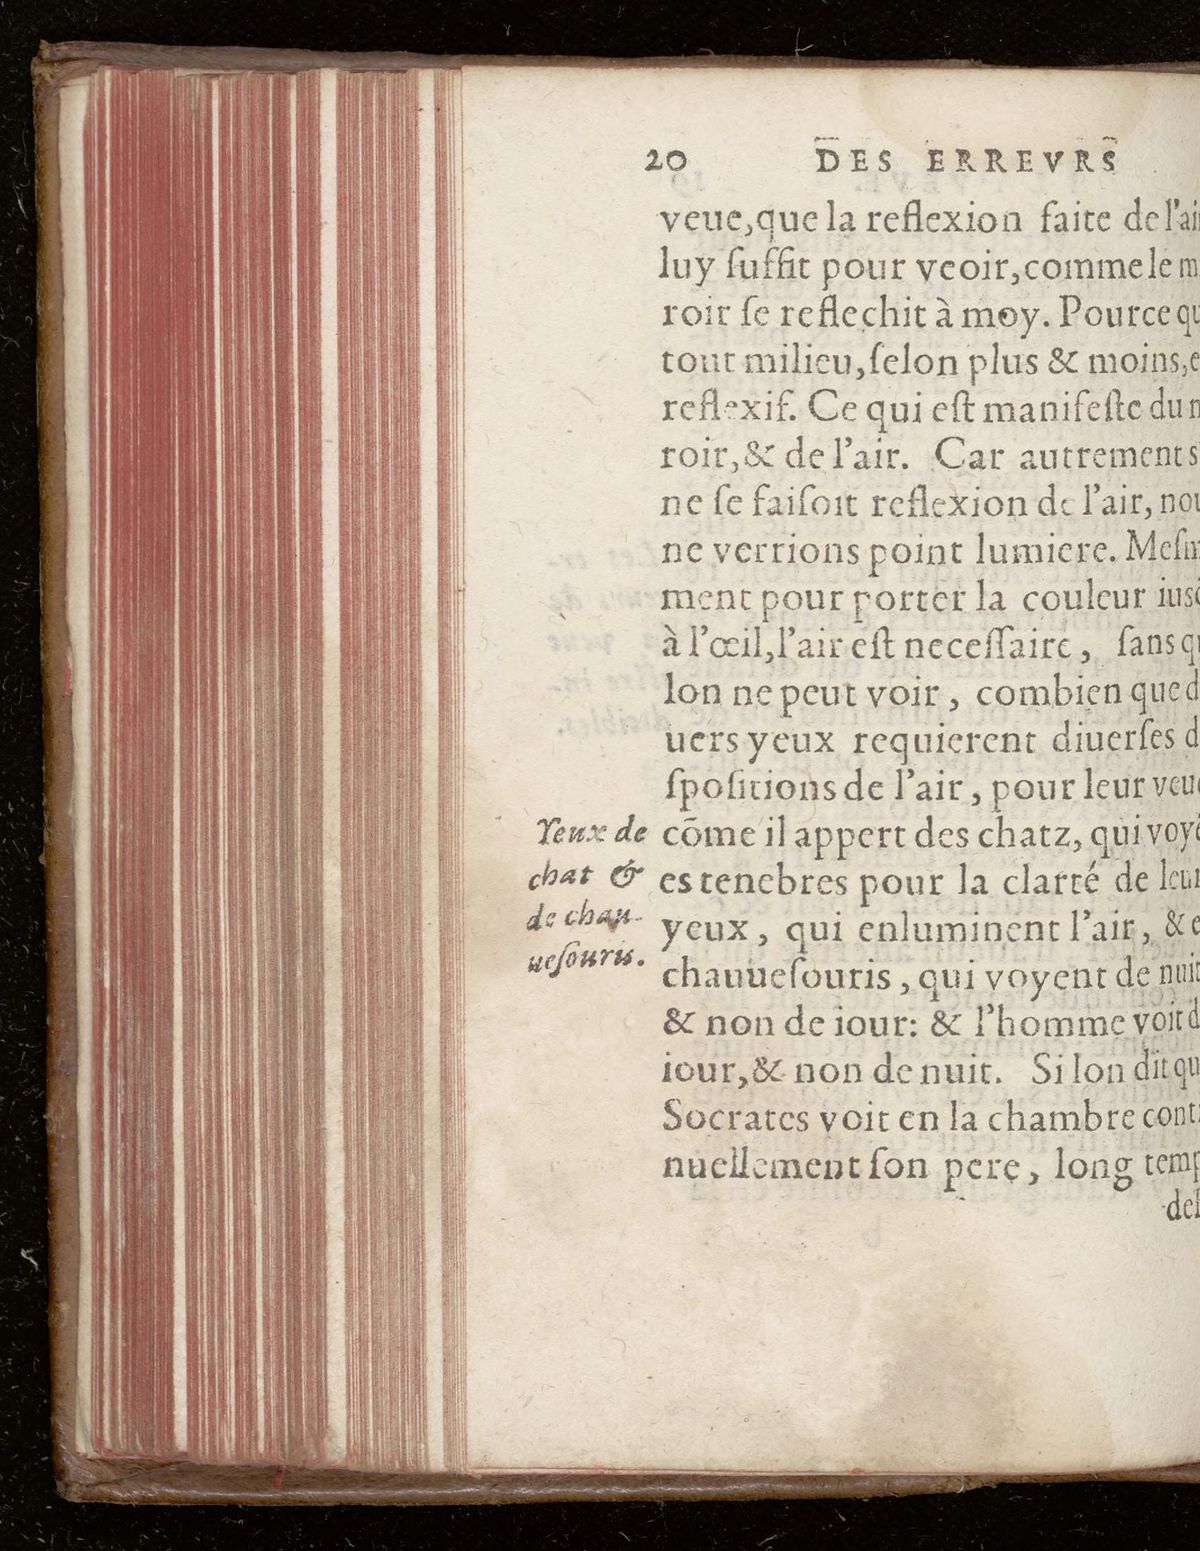 20 DES ERREVRS
veue, que la reflexion faite de l'air
luy ſuffit pour veoir, comme le m
roir ſe reflechit à moy. Pource qu
tout milieu, ſelon plus & moins, e
reflexif. Ce qui eſt manifeſte du m
roir, & de l'air. Car autrement s
ne ſe faiſoit reflexion de l'air, nou
ne verrions point lumiere. Meſm
ment pour porter la couleur iusq
à l'œil, l'air eſt neceſſaire, ſans qu
lon ne peut voir, combien que d
uers yeux requierent diuerſes d
ſpoſitions de l'air, pour leur veue
Yeux de
chat &
de chau-
ueſouris.
cõme il appert des chatz, qui voyẽ
es tenebres pour la clarté de leur
yeux, qui enluminent l'air, & e
chauueſouris, qui voyent de nuit
& non de iour: & l'homme voit d
iour, & non de nuit. Si lon dit qu
Socrates voit en la chambre conti
nuellement ſon pere, long temp
deſ